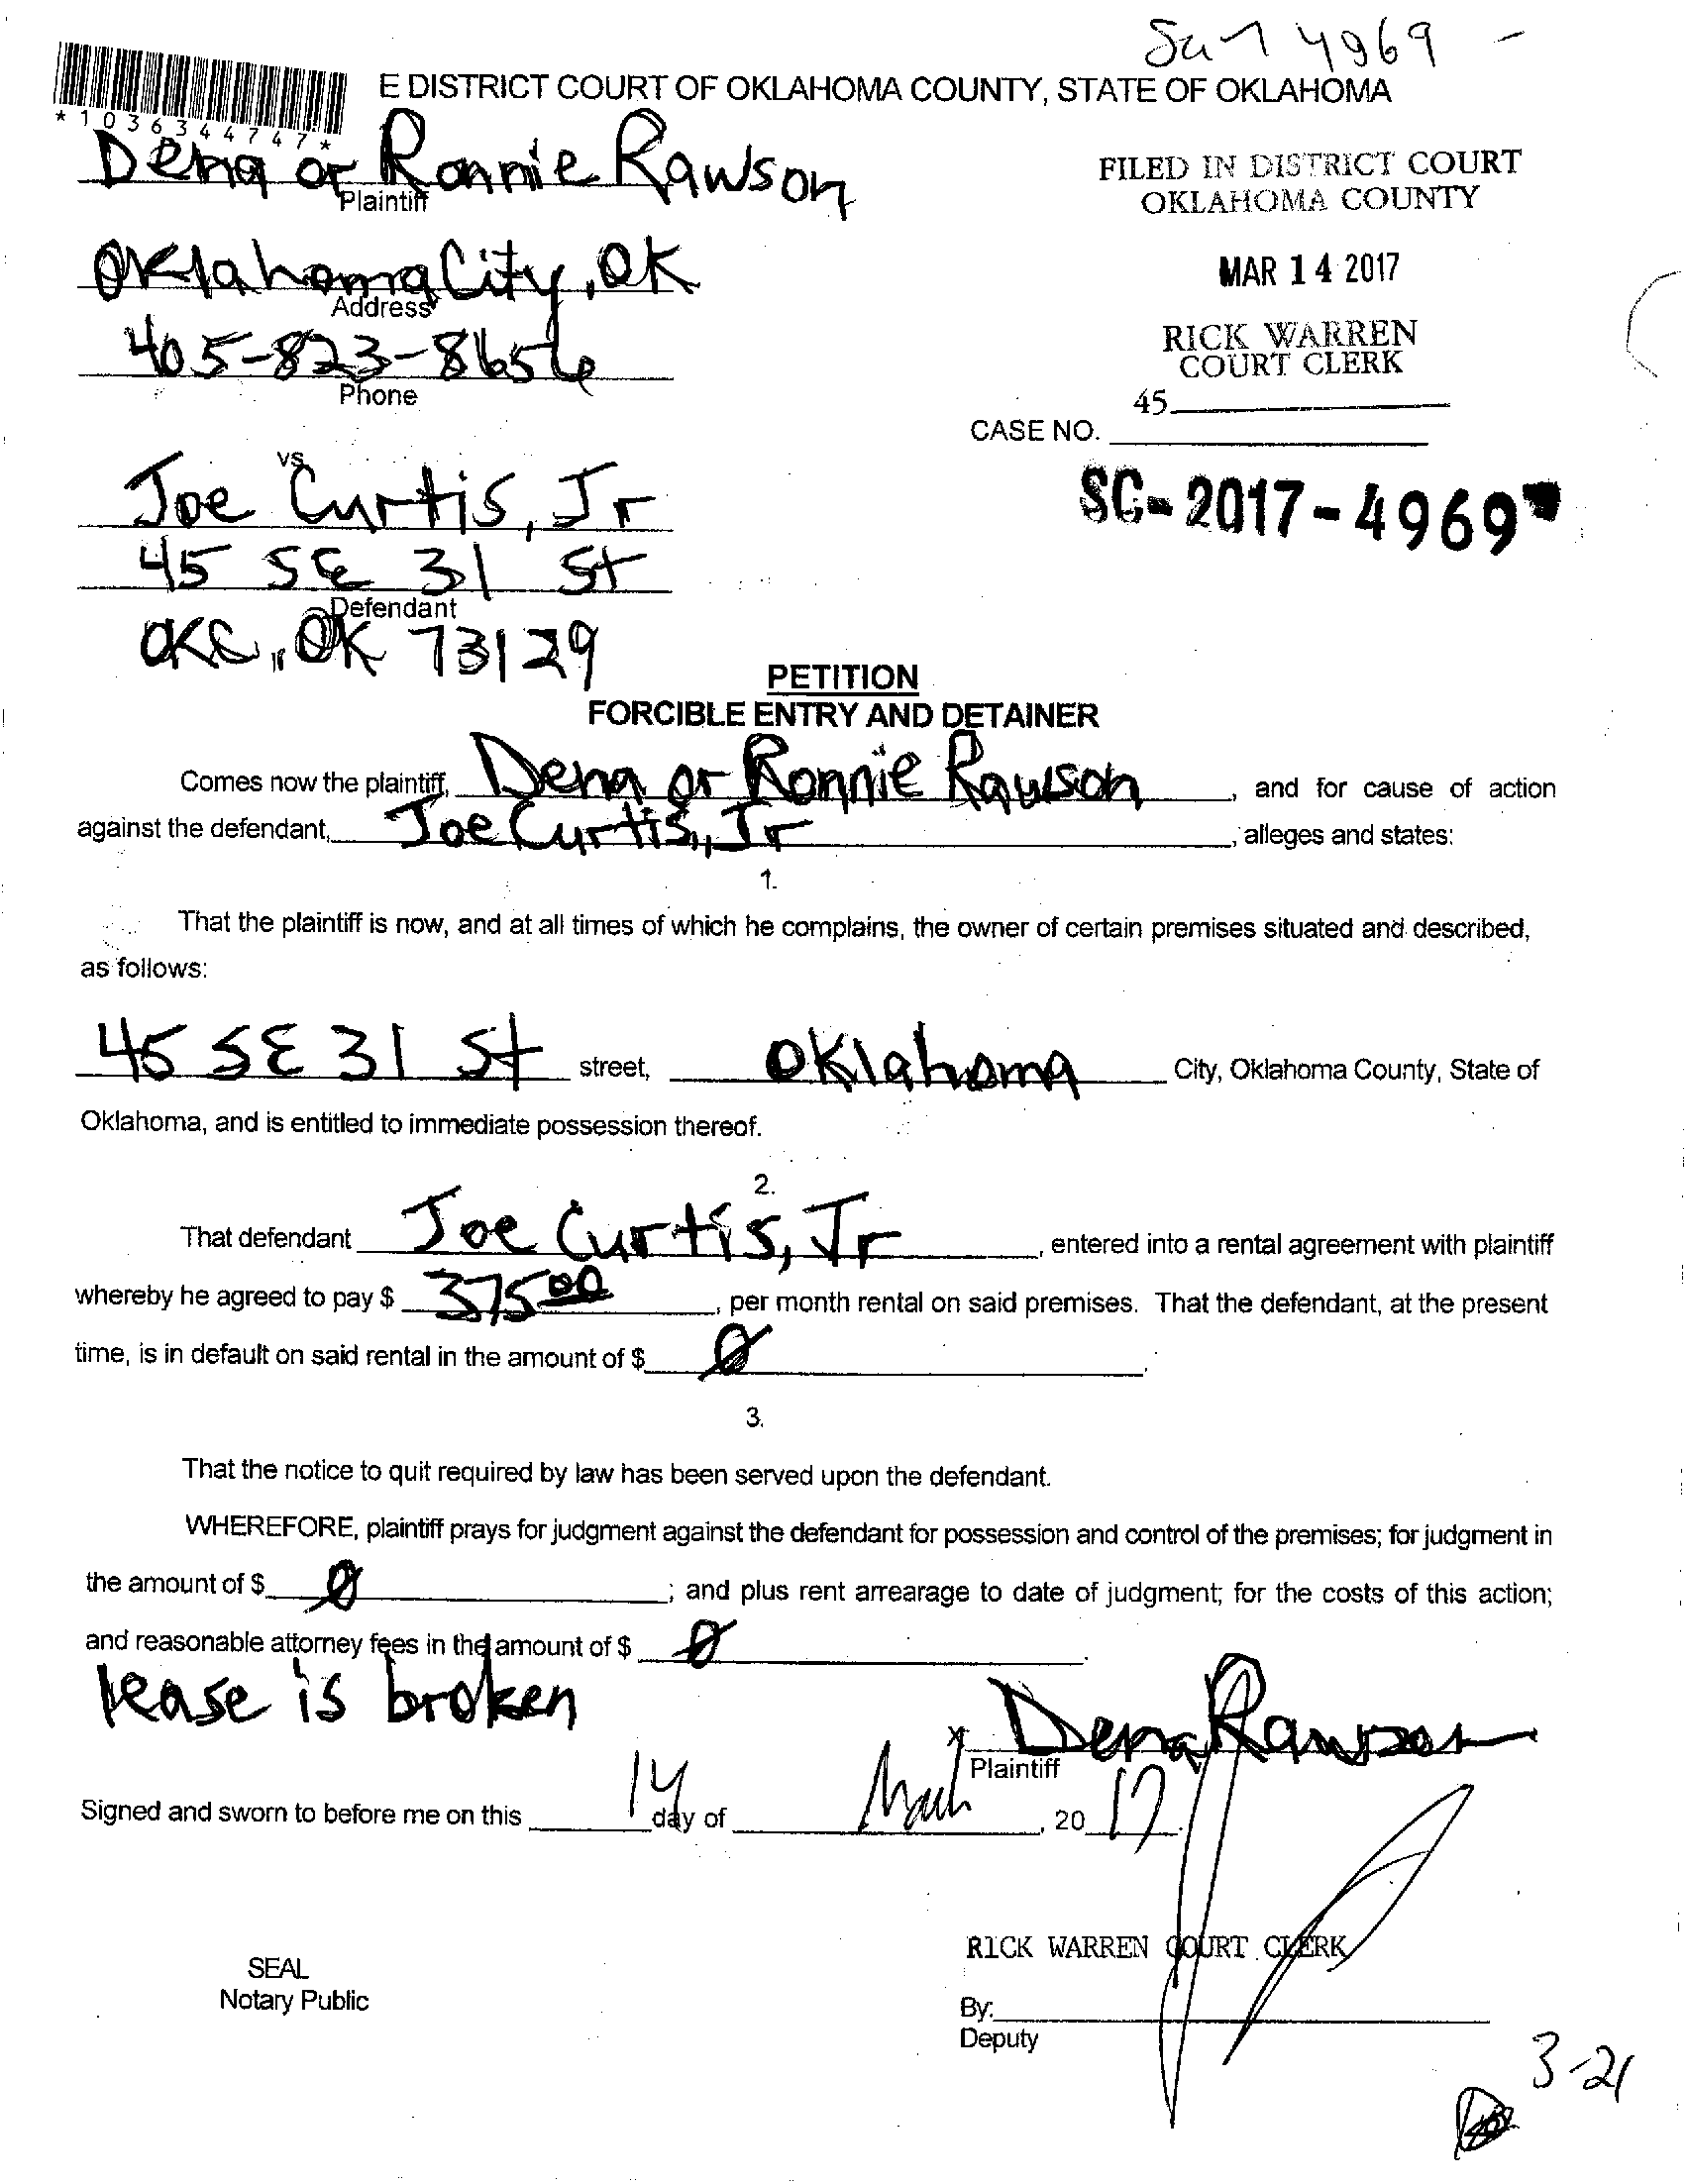 Sc-17 4969 -
E DISTRICT COURT OF OKLAHOMA COUNTY, STATE OF OKLAHOMA
*1036344747*
Dena or Ronnie Rawson
Plaintiff
FILED IN DISTRICT COURT
OKLAHOMA COUNTY
Oklahoma City, OK
Address
MAR 14 2017
405-823-8656
Phone
RICK WARREN
COURT CLERK
45
CASE NO.
vs
Joe Curtis, Jr
SC-2017-4969
45 SE 31 St
Defendant
OKC, OK 73129
PETITION
FORCIBLE ENTRY AND DETAINER
Comes now the plaintiff, Dena or Ronnie Rawson, and for cause of action
against the defendant, Joe Curtis, Jr, alleges and states:
1.
That the plaintiff is now, and at all times of which he complains, the owner of certain premises situated and described,
as follows:
45 SE 31 St street, Oklahoma City, Oklahoma County, State of
Oklahoma, and is entitled to immediate possession thereof.
2.
That defendant Joe Curtis, Jr, entered into a rental agreement with plaintiff
whereby he agreed to pay $ 375 00, per month rental on said premises. That the defendant, at the present
time, is in default on said rental in the amount of $ 0.
3.
That the notice to quit required by law has been served upon the defendant.
WHEREFORE, plaintiff prays for judgment against the defendant for possession and control of the premises; for judgment in
the amount of $ 0; and plus rent arrearage to date of judgment; for the costs of this action;
and reasonable attorney fees in the amount of $ 0.
lease is broken
x Dena Rawson
Plaintiff
Signed and sworn to before me on this 14 day of March, 20 17.
RICK WARREN COURT CLERK
SEAL
Notary Public
By:
Deputy
3-21